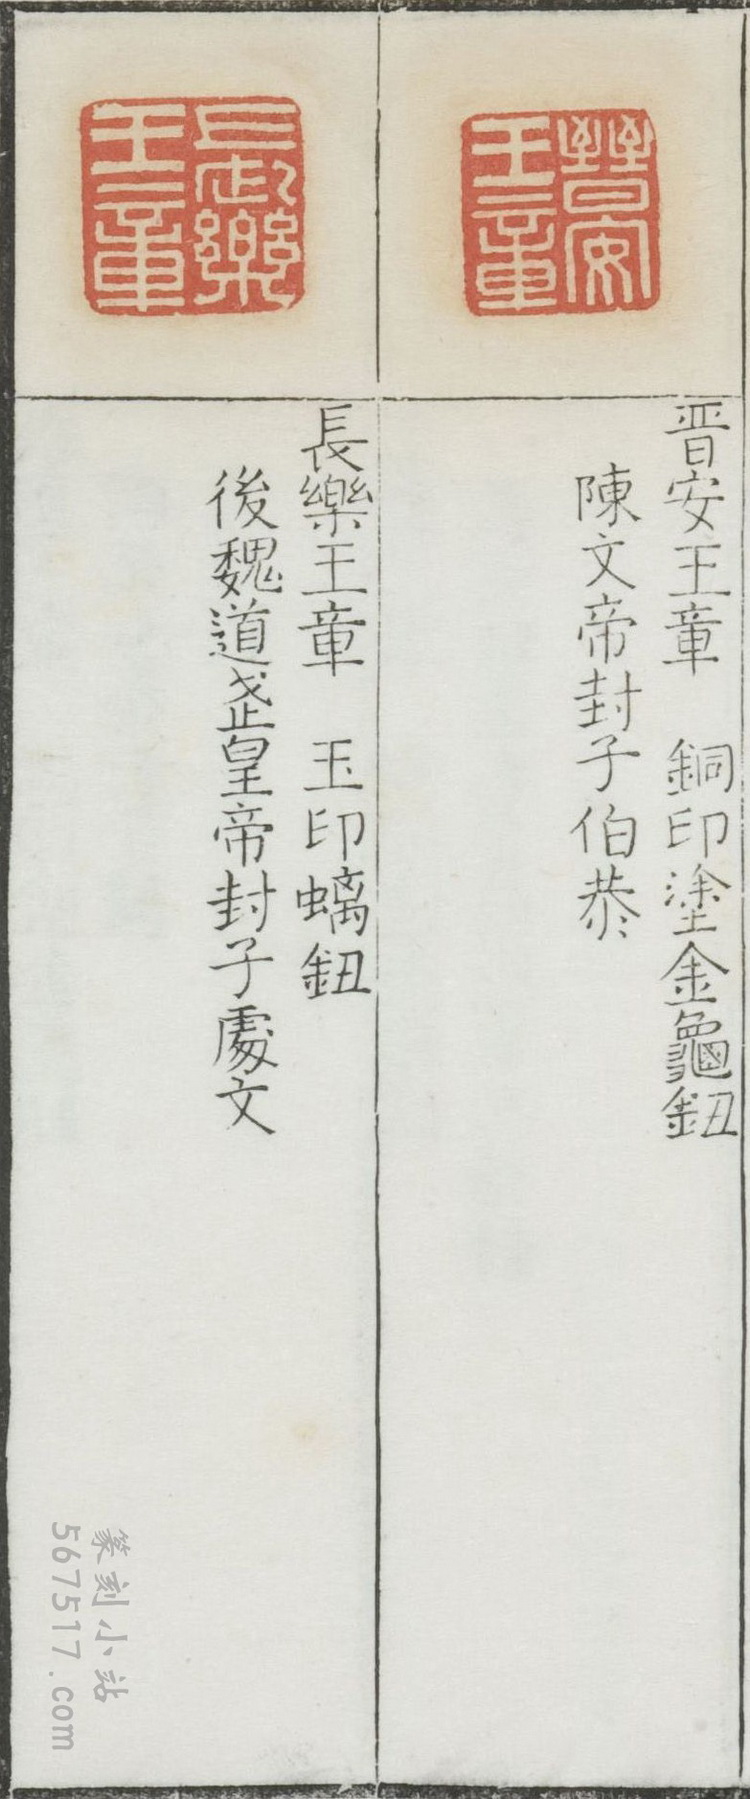 晉安王章
晉安王章　銅印塗金龜鈕
陳文帝封子伯恭
長樂王章
長樂王章　玉印螭鈕
後魏道武皇帝封子處文
篆刻小站
567517.com